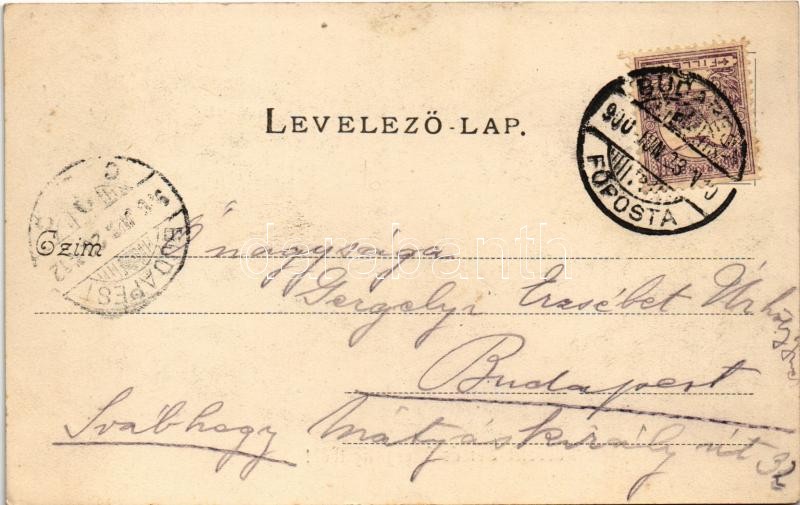 LEVELEZŐ-LAP.
FILLÉR
BUDAPEST
900 JUN. 23
FŐPOSTA
BUDAPEST
Czim
Őnagysága
Gergelyi Erzsébet Úrhölgynek
Budapest
Svábhegy Mátyáskirály út 32
darabanth